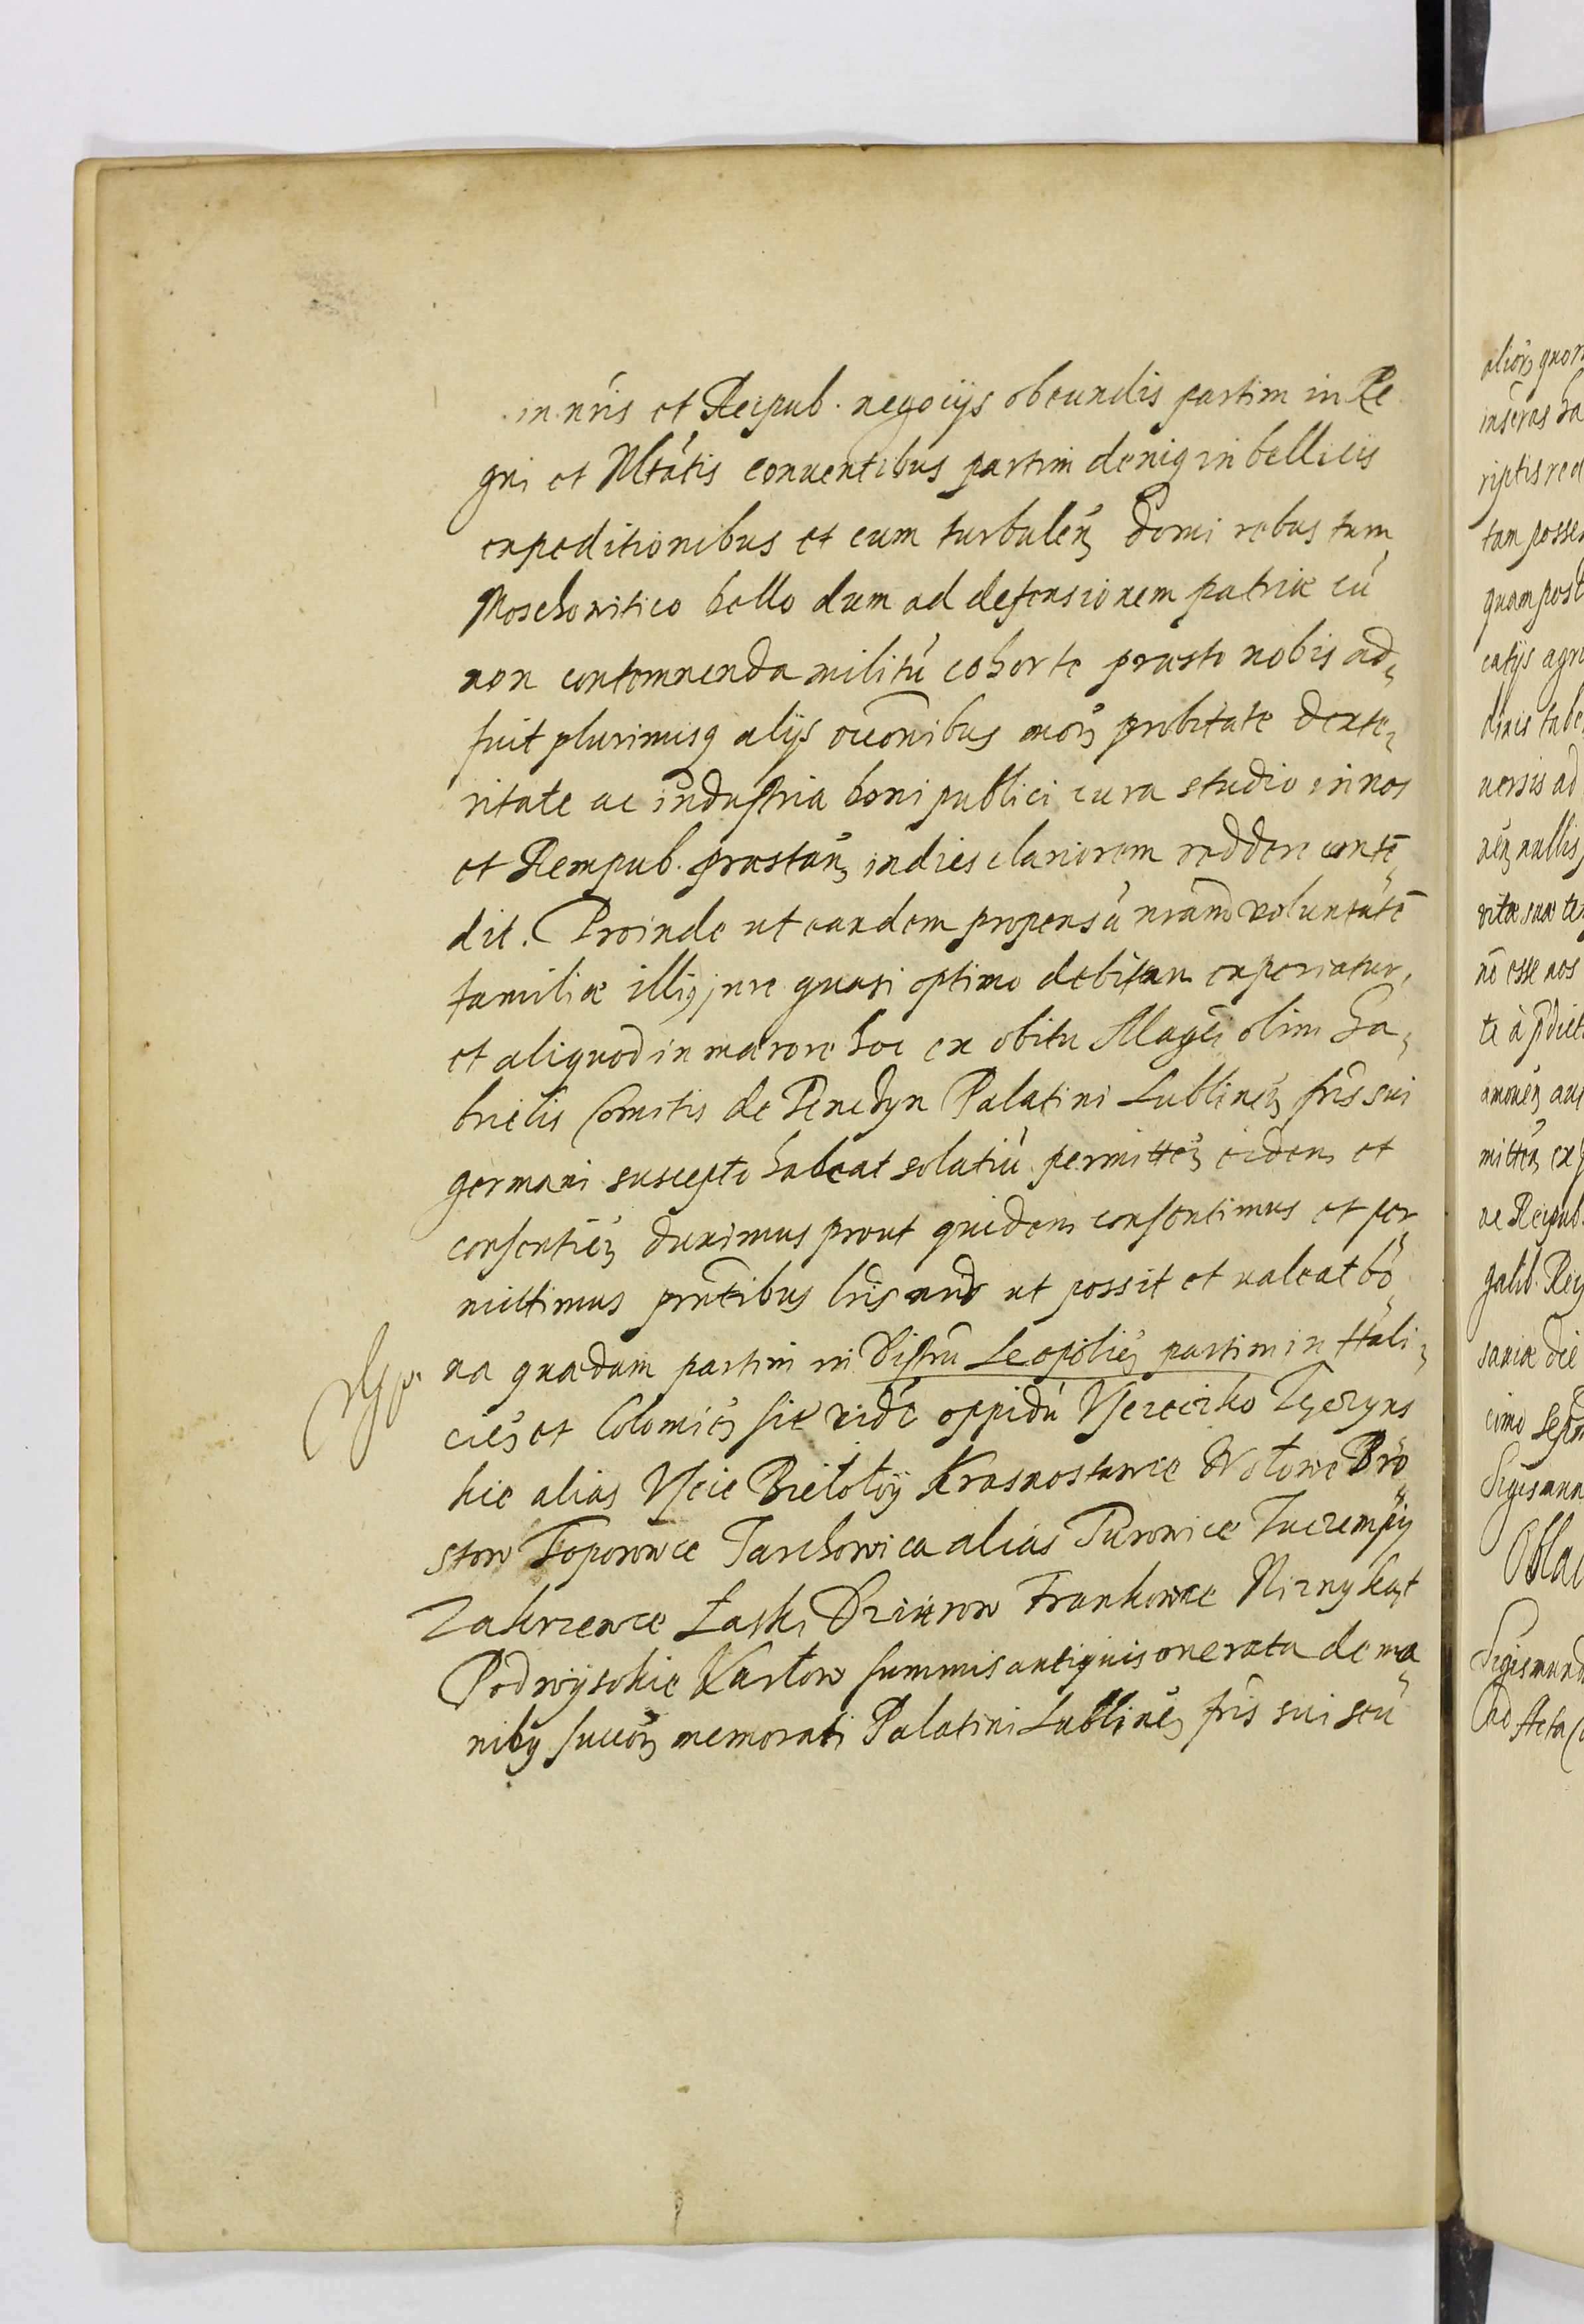 in nris et Reipub. negocijs obeundis partim in Re
gni et Mltatis conuentibus partim deniq in bellicis
expeditionibus et cum turbulen domi rebus tum
Moschowitico bello dum ad defensionem patriæ cu
non contemnenda militu cohorte præsto nobis ad
fuit plurimisq alijs occonibus mor probitate dexte
ritate ac industria boni publici cura studio in nos
et Rempub. præstan indies clariorem reddere conte
dit. Proinde ut eandem propensa nram voluntate
familiæ illi jure quasi optimo debitam experiatur,
et aliquod in mærore hoc ex obitu Magci olim Ga
brielis Comitis de Tenczyn Palatini Lublinen fris sui
germani suscepto habeat solatiu permitten eidem et
consentien duximus prout quidem consentimus et per
mittimus pntibus lris nris ut possit et ualeat bo
na quædam partim in Distru Leopolien partim in Hali
cien et Colomien sit vidc oppidu Vscieczko Tęczyns
kie alias Vscie Biełołoy Krasnostawce Wołowe Bro
stow Toporowce Tarchowica alias Turowice Tuczempy
Zakrzewce Łaski Dziurow Frankowce Niznykąt
Podwysokie Karłow summis antiquis onerata de ma
nibq succor memorati Palatini Lublinen fris sui seu
alior quor
inseras ha
riptis red
tam posses
quam post
catijs agri
dinis tabe
uersis ad
nen nullis
vitæ suæ te
no esse nos
te à pdict
amouen aut
mitten ex
ac Reipub.
galib. Reg
saviæ die
cimo septm
Sigismun
Obla
Sigismund
Ad Acta